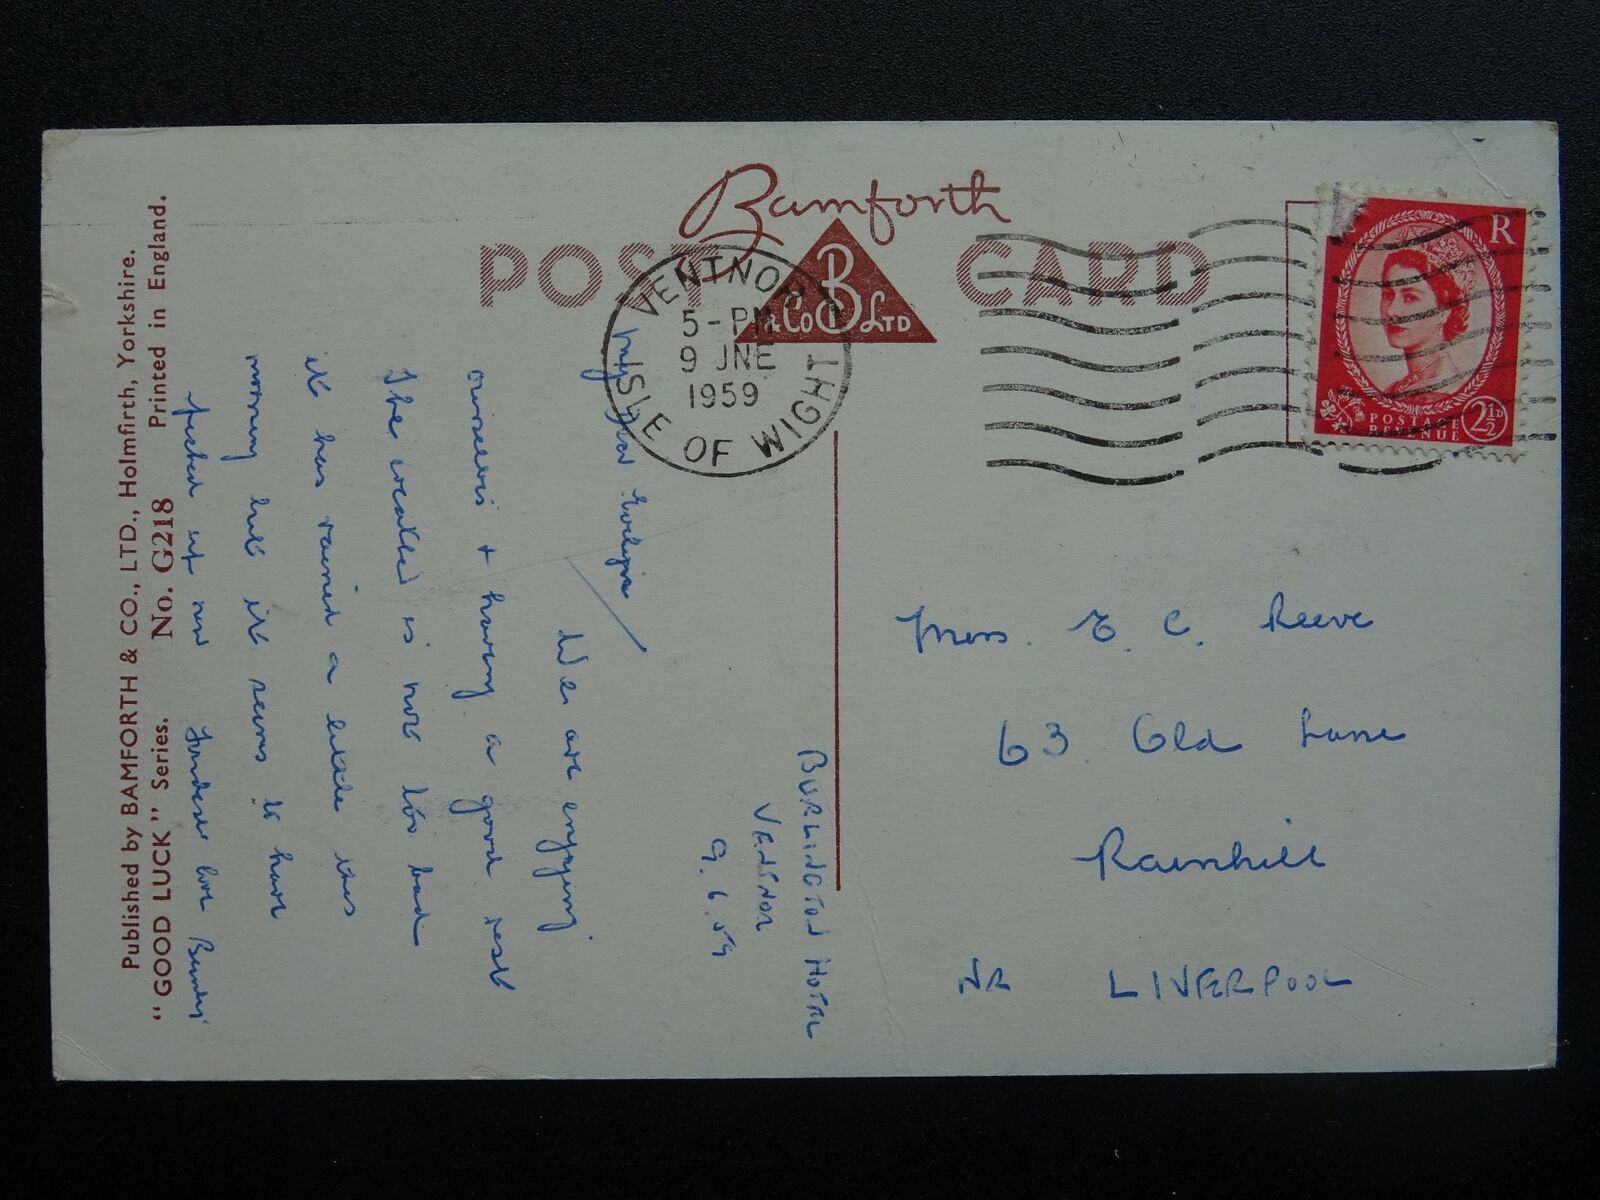 Published by BAMFORTH & CO., LTD., Holmfirth, Yorkshire.
"GOOD LUCK" Series. No. G218 Printed in England.
Bamforth
POST CARD
& Co B LTD
VENTNOR
5-PM
9 JNE
1959
ISLE OF WIGHT
R
POSTAGE
REVENUE
2½D
BURLINGTON HOTEL
VENTNOR
9.6.59
My dear Evelyn
We are enjoying
ourselves & having a good rest
The weather is not too bad
it has rained a little this
morning but it seems to have
picked up now Fondest love
Miss. E. C. Reeve
63 Old Lane
Rainhill
NR LIVERPOOL